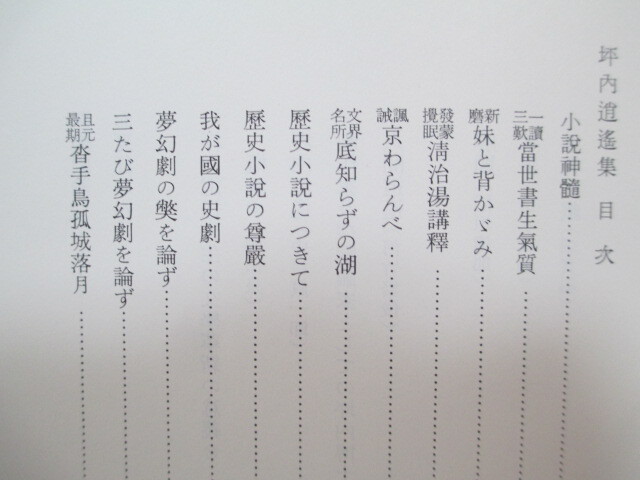 坪內逍遙集 目次
小說神髓
一讀三歎當世書生氣質
新磨妹と背かゞみ
發蒙攪眠淸治湯講釋
諷誡京わらんべ
文界名所底知らずの湖
歷史小說につきて
歷史小說の尊嚴
我が國の史劇
夢幻劇の弊を論ず
三たび夢幻劇を論ず
且元最期沓手鳥孤城落月